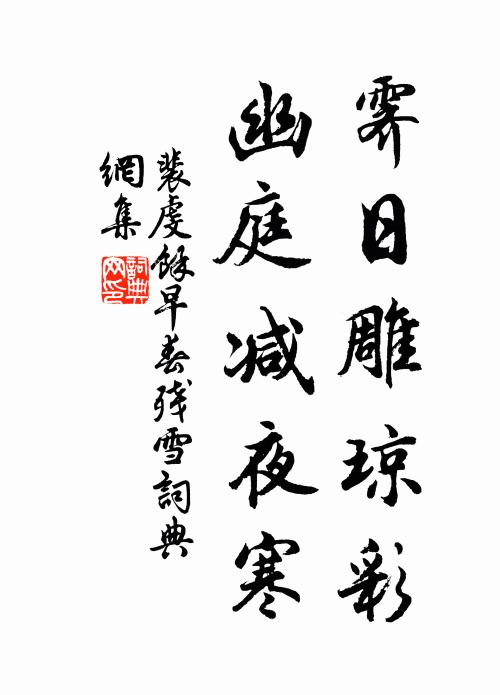 霽日雕琼彩
幽庭减夜寒
裴虔餘早春残雪詞典
網集
詞典網印